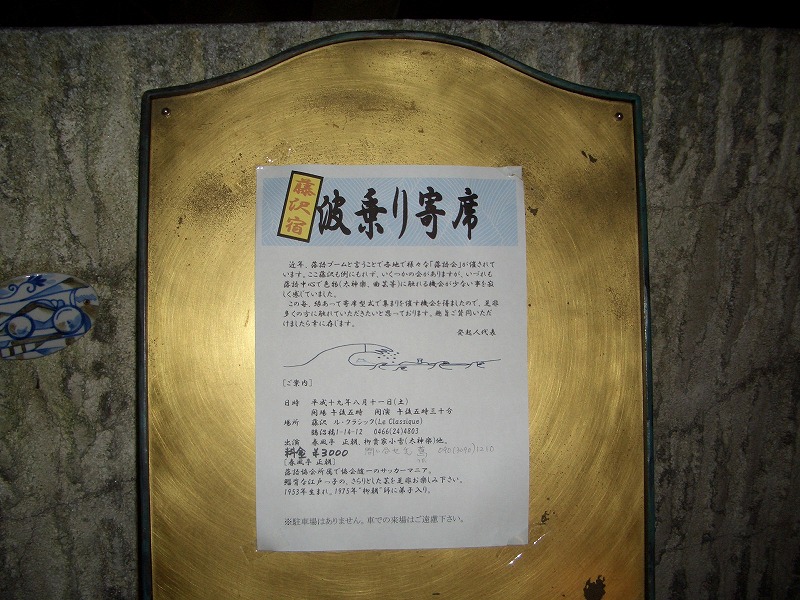 藤沢宿
波乗り寄席
近年、落語ブームと言うことで各地で様々な「落語会」が催されて
います。ここ藤沢も例にもれず、いくつかの会がありますが、いづれも
落語中心で色物(太神楽、曲芸等)に触れる機会が少ない事を寂
しく感じていました。
この毎、縁あって寄席型式で集まりを催す機会を得ましたので、是非
多くの方に触れていただきたいと思っております。趣旨ご賛同いただ
けましたら幸に存じます。
発起人代表
[ご案内]
日時 平成十九年八月十一日(土)
開場 午後五時 開演 午後五時三十分
場所 藤沢 ル・クラシック(Le Classique)
鵠沼橋1-14-12 0466(24)4803
出演 春風亭 正朝、柳貴家小雪(太神楽)他。
料金 ¥3000 問い合せ先
[春風亭 正朝]
落語協会所属で協会随一のサッカーマニア。
鯔背な江戸っ子の、さらりとした芸を是非お楽しみ下さい。
1953年生まれ。1975年"柳朝"師に弟子入り。
※駐車場はありません。車での来場はご遠慮下さい。